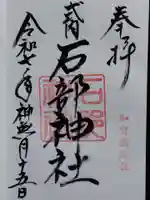 奉拝
式内
石部神社
令和七年神無月十五日